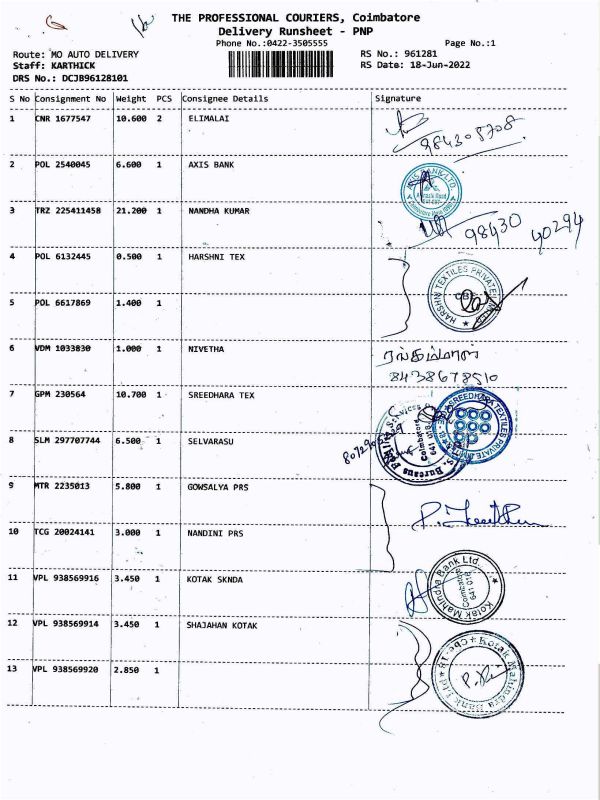 THE PROFESSIONAL COURIERS, Coimbatore
Delivery Runsheet - PNP
Phone No.:0422-3505555
Page No.:1
Route: MO AUTO DELIVERY
RS No.: 961281
Staff: KARTHICK
RS Date: 18-Jun-2022
DRS No.: DCJB96128101
S No Consignment No Weight PCS Consignee Details Signature
1 CNR 1677547 10.600 2 ELIMALAI
2 POL 2540045 6.600 1 AXIS BANK
3 TRZ 225411458 21.200 1 NANDHA KUMAR
98430 40294
4 POL 6132445 0.500 1 HARSHNI TEX
HARSHNI TEXTILES PRIVATE
5 POL 6617869 1.400 1
6 VDM 1033830 1.000 1 NIVETHA
ரங்கம்மாள்
8438678510
7 GPM 230564 10.700 1 SREEDHARA TEX
SREEDHARA TEXTILES PRIVATE
8 SLM 297707744 6.500 1 SELVARASU
9 MTR 2235013 5.800 1 GOWSALYA PRS
10 TCG 20024141 3.000 1 NANDINI PRS
11 VPL 938569916 3.450 1 KOTAK SKNDA
Kotak Mahindra Bank Ltd.
Coimbatore
641 018
12 VPL 938569914 3.450 1 SHAJAHAN KOTAK
Kotak Mahindra Bank Ltd
CBE-18
13 VPL 938569920 2.850 1